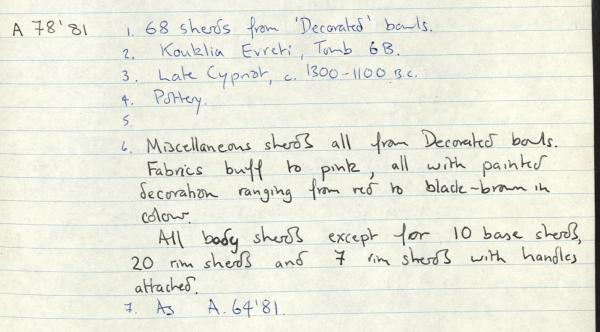 A 78'81 1. 68 sherds from 'Decorated' bowls.
2. Kouklia Evreti, Tomb 6B.
3. Late Cypriot, c. 1300-1100 B.C.
4. Pottery.
5.
6. Miscellaneous sherds all from Decorated bowls.
Fabrics buff to pink, all with painted
decoration ranging from red to black-brown in
colour.
All body sherds except for 10 base sherds,
20 rim sherds and 7 rim sherds with handles
attached.
7. As A.64'81.